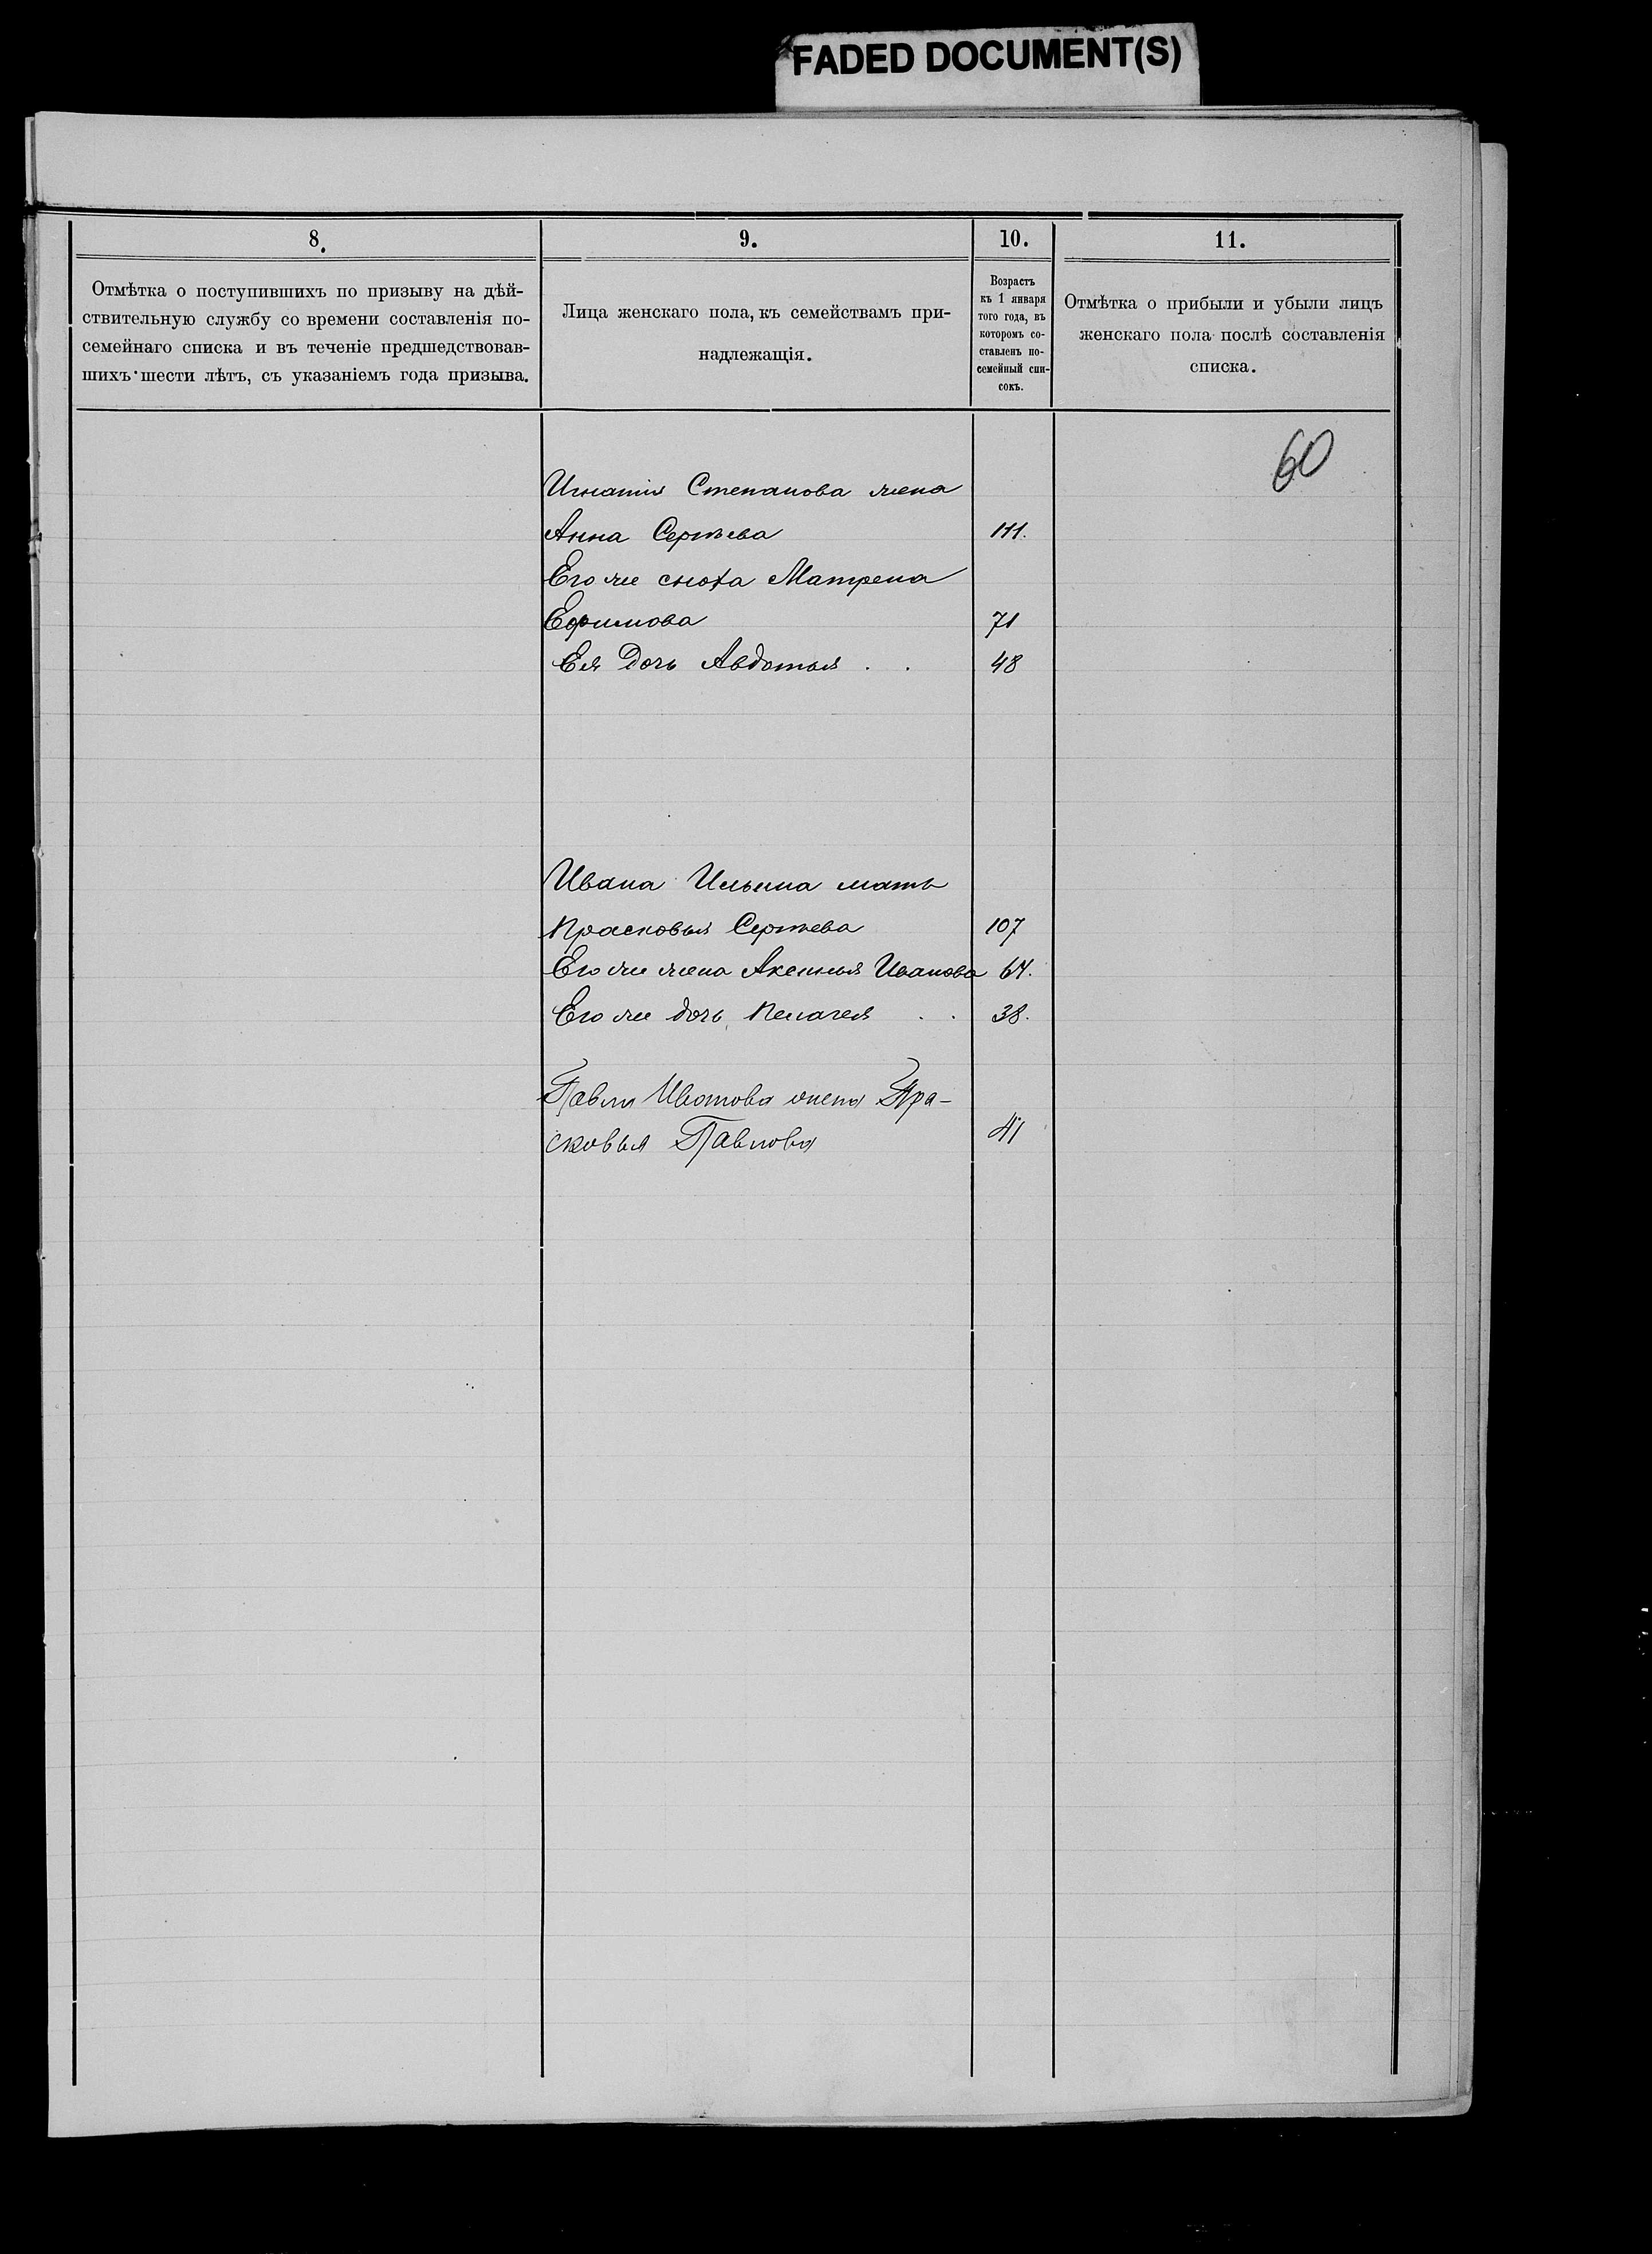 FADED DOCUMENT(S)
8.
Отмѣтка о поступившихъ по призыву на дѣй-
ствительную службу со времени составленія по-
семейнаго списка и въ теченіе предшедствовав-
шихъ шести лѣтъ, съ указаніемъ года призыва.
9.
Лица женскаго пола, къ семействамъ при-
надлежащія.
10.
Возрастъ
къ 1 января
того года, въ
которомъ со-
ставленъ по-
семейный спи-
сокъ.
11.
Отмѣтка о прибыли и убыли лицъ
женскаго пола послѣ составленія
списка.
60
Игнатія Степанова жена
Анна Сергѣева 111.
Его же сноха Матрена
Ефимова 71
Ея Дочь Авдотья . . 48
Ивана Ильина мать
Прасковья Сергѣева 107
Его же жена Аксинья Иванова 64.
Его же дочь Пелагея . . 38.
Павла Иванова жена Пра-
сковья Павлова 41